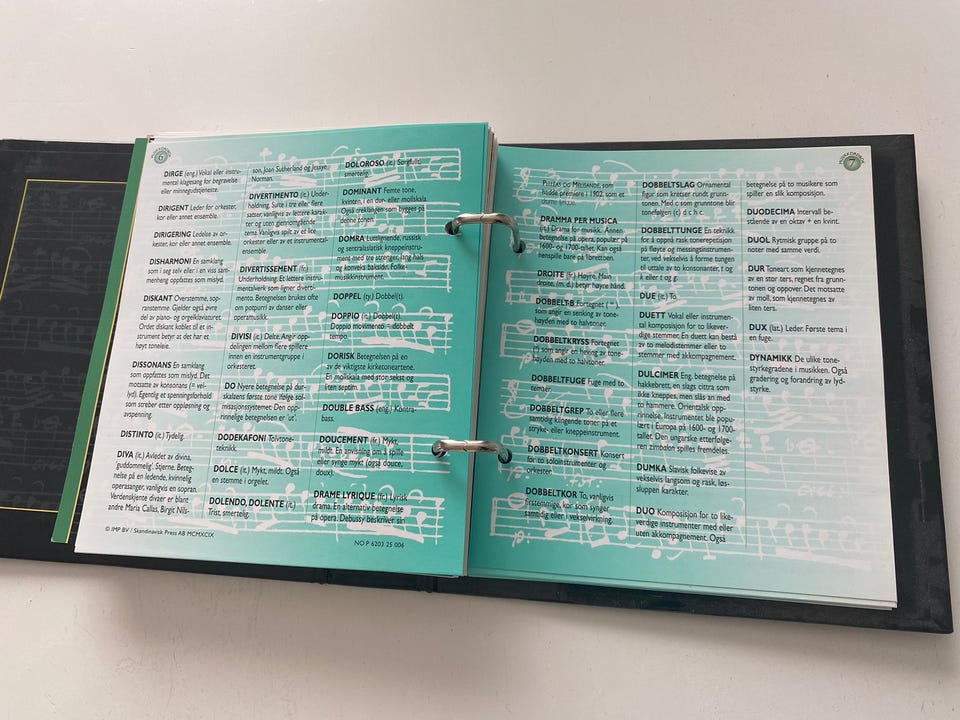 6
DIRGE (eng.) Vokal eller instru-
mental klagesang for begravelse
eller minnegudstjeneste.
DIRIGENT Leder for orkester,
kor eller annet ensemble.
DIRIGERING Ledelse av or-
kester, kor eller annet ensemble.
DISHARMONI En samklang
som i seg selv eller i en viss sam-
menheng oppfattes som mislyd.
DISKANT Overstemme, sop-
ranstemme. Gjelder også øvre
del av piano- og orgelklaviaturet.
Ordet diskant koblet til et in-
strument betyr at det har et
høyt toneleie.
DISSONANS En samklang
som oppfattes som mislyd. Det
motsatte av konsonans (= vel-
lyd). Egentlig et spenningsforhold
som streber etter oppløsning og
avspenning.
DISTINTO (it.) Tydelig.
DIVA (it.) Avledet av divina,
'guddommelig'. Stjerne. Beteg-
nelse på en ledende, kvinnelig
operasanger, vanligvis en sopran.
Verdenskjente divaer er blant
andre Maria Callas, Birgit Nils-
son, Joan Sutherland og Jessye
Norman.
DIVERTIMENTO (it.) Under-
holdning. Suite i tre eller flere
satser, vanligvis av lettere karak-
ter og uten gjennomgående
tema. Vanligvis spilt av et lite
orkester eller av et instrumental-
ensemble.
DIVERTISSEMENT (fr.)
Underholdning. Et lettere instru-
mentalverk som ligner diverti-
mento. Betegnelsen brukes ofte
om potpurri av danser eller
operamusikk.
DIVISI (it.) Delte. Angir opp-
delingen mellom flere spillere
innen en instrumentgruppe i
orkesteret.
DO Nyere betegnelse på dur-
skalaens første tone ifølge sol-
misasjonssystemet. Den opp-
rinnelige betegnelsen er 'ut'.
DODEKAFONI Tolvtone-
teknikk.
DOLCE (it.) Mykt, mildt. Også
en stemme i orgelet.
DOLENDO, DOLENTE (it.)
Trist, smertelig.
DOLOROSO (it.) Sorgfullt,
smertelig.
DOMINANT Femte tone,
kvinten, i en dur- eller mollskala.
Også treklangen som bygges på
denne tonen.
DOMRA Luttlignende, russisk
og sentralasiatisk knepeinstru-
ment med tre strenger, lang hals
og konveks bakside. Folke-
musikkinstrument.
DOPPEL (ty.) Dobbel(t).
DOPPIO (it.) Dobbel(t).
Doppio movimento = dobbelt
tempo.
DORISK Betegnelsen på en
av de viktigste kirketoneartene.
En mollskala med stor sekst og
liten septim.
DOUBLE BASS (eng.) Kontra-
bass.
DOUCEMENT (fr.) Mykt,
mildt. En anvisning om å spille
eller synge mykt (også douce,
doux).
DRAME LYRIQUE (fr.) Lyrisk
drama. En alternativ betegnelse
på opera. Debussy beskriver sin
© IMP BV / Skandinavisk Press AB MCMXCIX
NO P 6203 25 006
7
PELLÉAS OG MELISANDE, som
hadde premiere i 1902, som et
drame lyrique.
DRAMMA PER MUSICA
(it.) Drama for musikk. Annen
betegnelse på opera, populær på
1600- og 1700-tallet. Kan også
henspille bare på librettoen.
DROITE (fr.) Høyre. Main
droite, (m. d.) betyr høyre hånd.
DOBBELT-B Fortegnet
som angir en senking av tone-
høyden med to halvtoner.
DOBBELTKRYSS Fortegnet
som angir en heving av tone-
høyden med to halvtoner.
DOBBELTFUGE Fuge med to
temaer.
DOBBELTGREP To eller flere
samtidig klingende toner på et
stryke- eller knepeinstrument.
DOBBELTKONSERT Konsert
for to soloinstrumenter og
orkester.
DOBBELTKOR To, vanligvis
firstemmige, kor som synger
samtidig eller i vekselvirkning.
DOBBELTSLAG Ornamental
figur som kretser rundt grunn-
tonen. Med c som grunntone blir
tonefølgen (c) d c h c.
DOBBELTTUNGE En teknikk
for å oppnå rask tonerepetisjon
på fløyte og messinginstrumen-
ter, ved vekselvis å forme tungen
til uttale av to konsonanter, t og
k eller t og g.
DUE (it.) To.
DUETT Vokal eller instru-
mental komposisjon for to likever-
dige stemmer. En duett kan bestå
av to melodistemmer eller to
stemmer med akkompagnement.
DULCIMER Eng. betegnelse på
hakkebrett, en slags citra som
ikke kneppes, men slås an med
to hammere. Orientalsk opp-
rinnelse. Instrumentet ble popu-
lært i Europa på 1600- og 1700-
tallet. Den ungarske etterfølge-
ren zimbalon spilles fremdeles.
DUMKA Slavisk folkevise av
vekselvis langsom og rask, løs-
sluppen karakter.
DUO Komposisjon for to like-
verdige instrumenter med eller
uten akkompagnement. Også
betegnelse på to musikere som
spiller en slik komposisjon.
DUODECIMA Intervall be-
stående av en oktav + en kvint.
DUOL Rytmisk gruppe på to
noter med samme verdi.
DUR Toneart som kjennetegnes
av en stor ters, regnet fra grunn-
tonen og oppover. Det motsatte
av moll, som kjennetegnes av
liten ters.
DUX (lat.) Leder. Første tema i
en fuge.
DYNAMIKK De ulike tone-
styrkegradene i musikken. Også
gradering og forandring av lyd-
styrke.